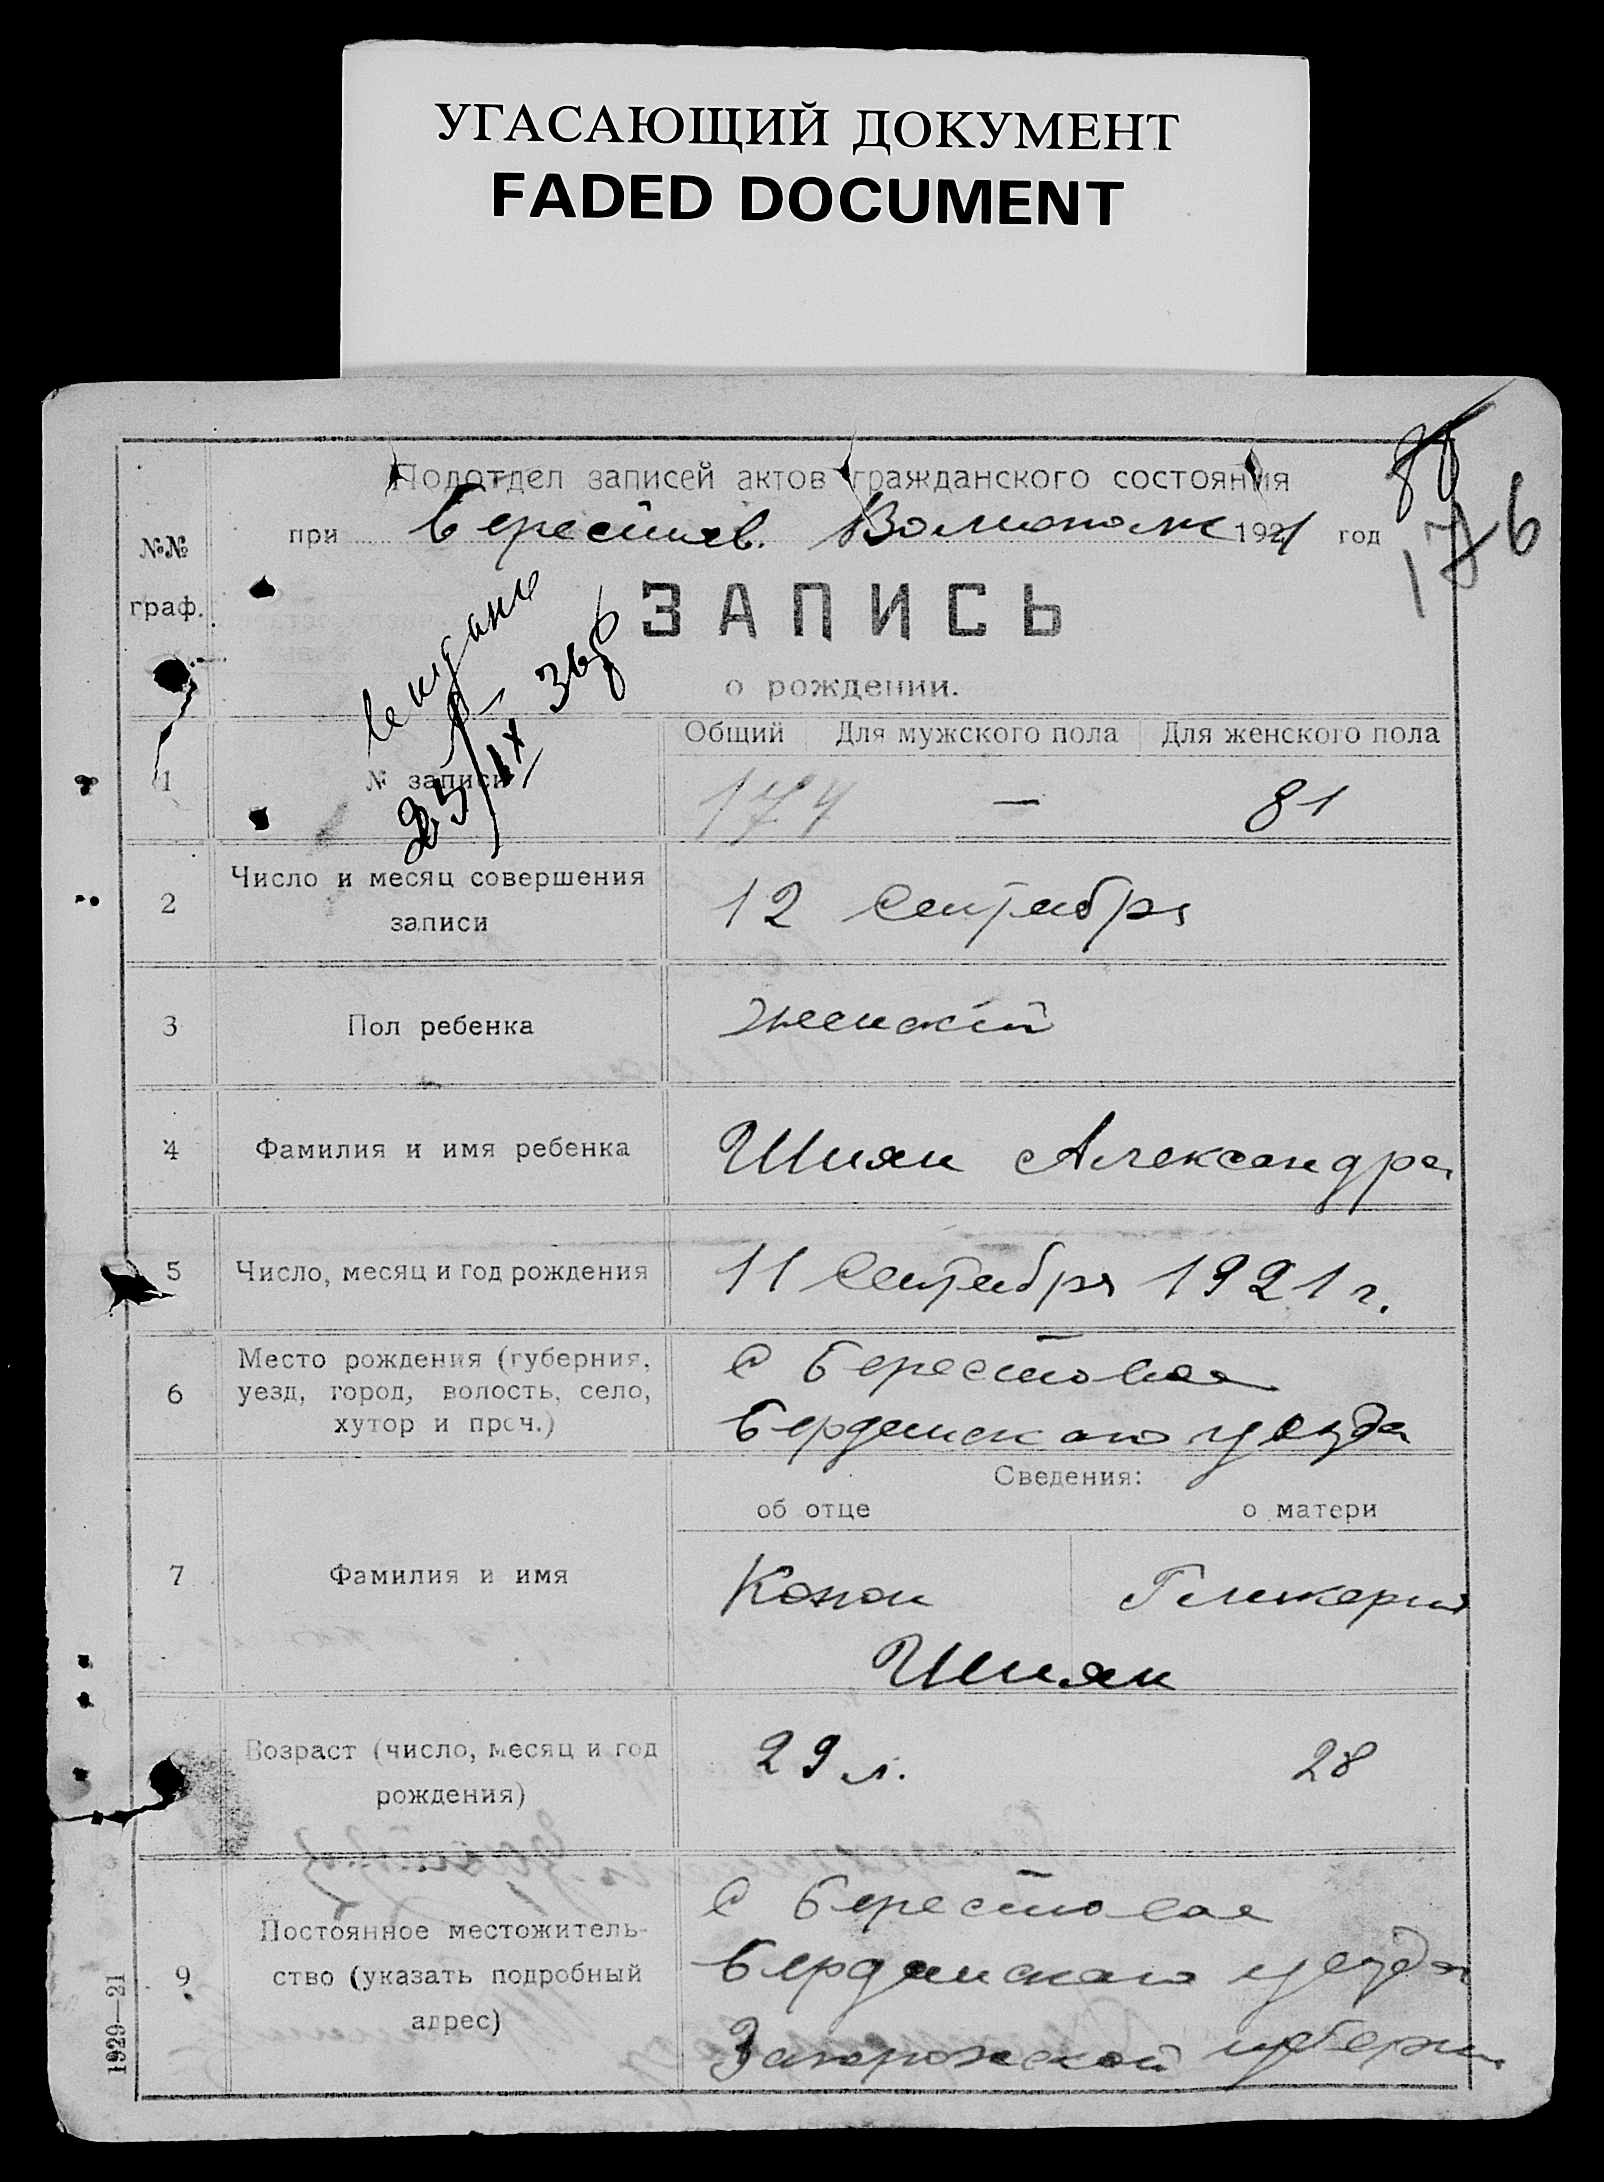 УГАСАЮЩИЙ ДОКУМЕНТ
FADED DOCUMENT
176
Подотдел записей актов гражданского состояния
при Берестов. Волисполк 1921 год
№№ граф.
ЗАПИСЬ
о рождении.
Общий Для мужского пола Для женского пола
1 № записи 174 — 81
25/IX
2 Число и месяц совершения записи 12 Сентября
3 Пол ребенка женскій
4 Фамилия и имя ребенка Шиян Александра
5 Число, месяц и год рождения 11 Сентября 1921 г.
6 Место рождения (губерния, С Берестовая
уезд, город, волость, село, Бердянского уезда
хутор и проч.)
Сведения:
об отце о матери
7 Фамилия и имя Конон Гликерия
Шиян
Возраст (число, месяц и год 29 л. 28
рождения)
С Берестовая
9 Постоянное местожитель-
ство (указать подробный Бердянского уезда
адрес) Запорожской губернии
1929—21